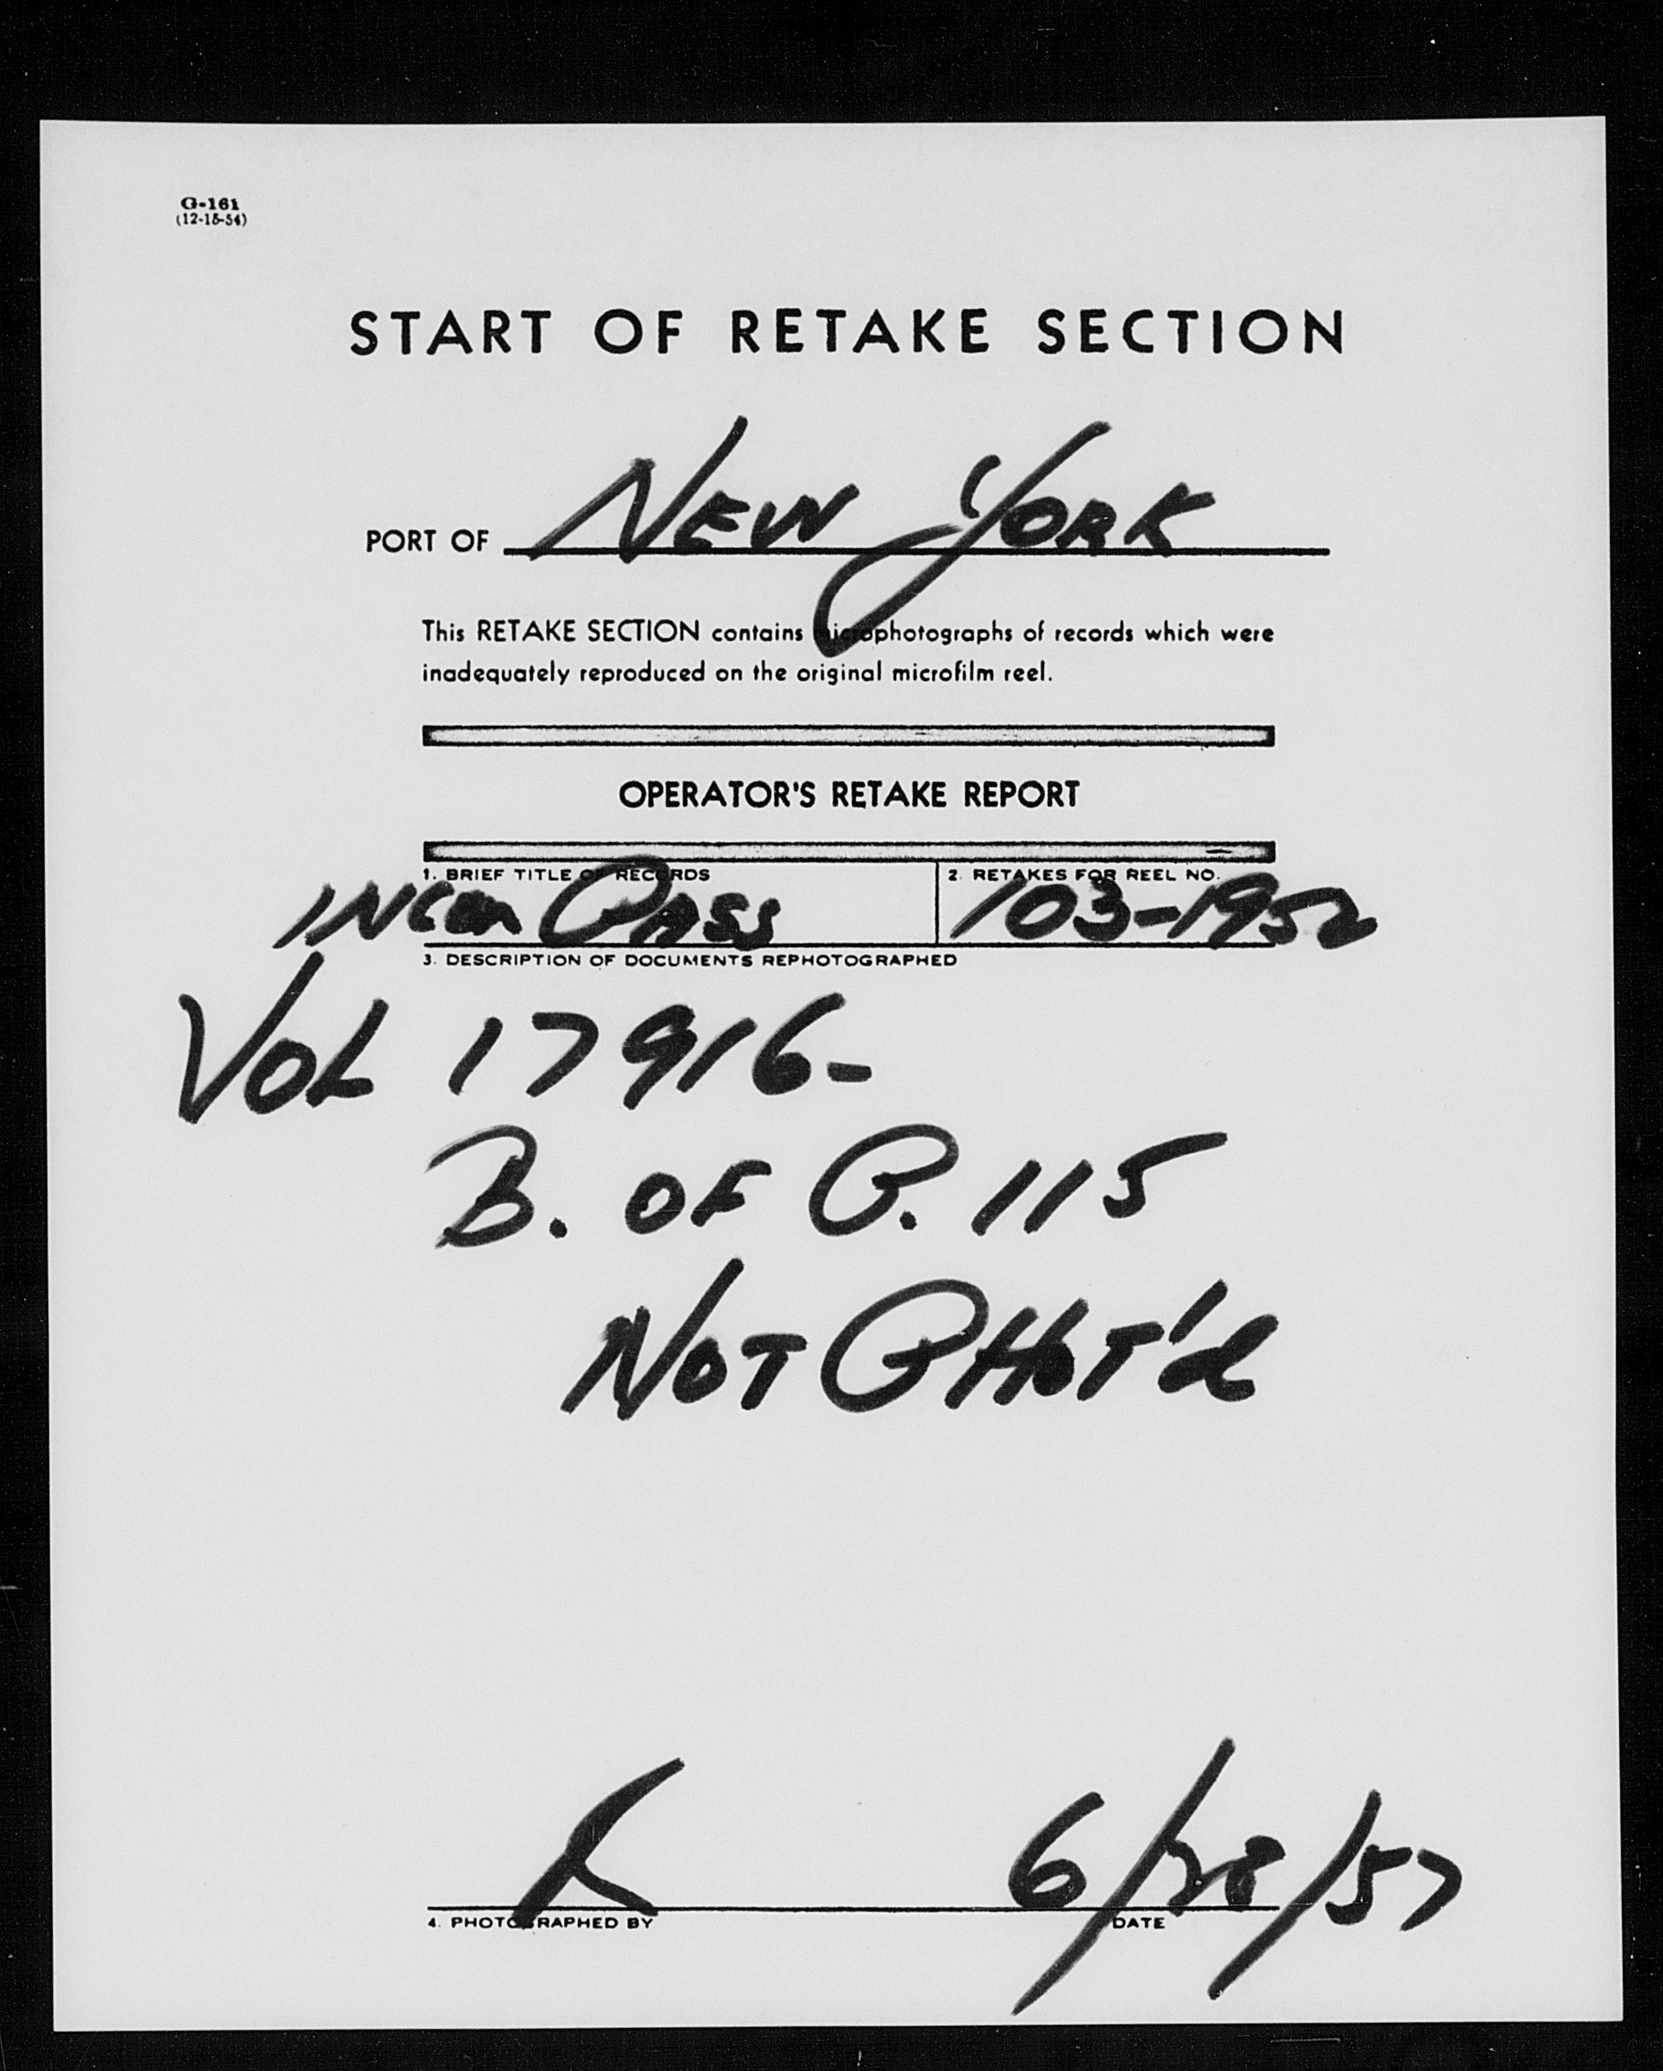 G-161
(12-15-54)
START OF RETAKE SECTION
PORT OF NEW YORK
This RETAKE SECTION contains microphotographs of records which were
inadequately reproduced on the original microfilm reel.
OPERATOR'S RETAKE REPORT
1. BRIEF TITLE OF RECORDS 2. RETAKES FOR REEL NO.
INCOM PASS 103-1952
3. DESCRIPTION OF DOCUMENTS REPHOTOGRAPHED
VOL 17916-
B. OF P. 115
NOT PHOT'd
6/28/57
4. PHOTOGRAPHED BY DATE